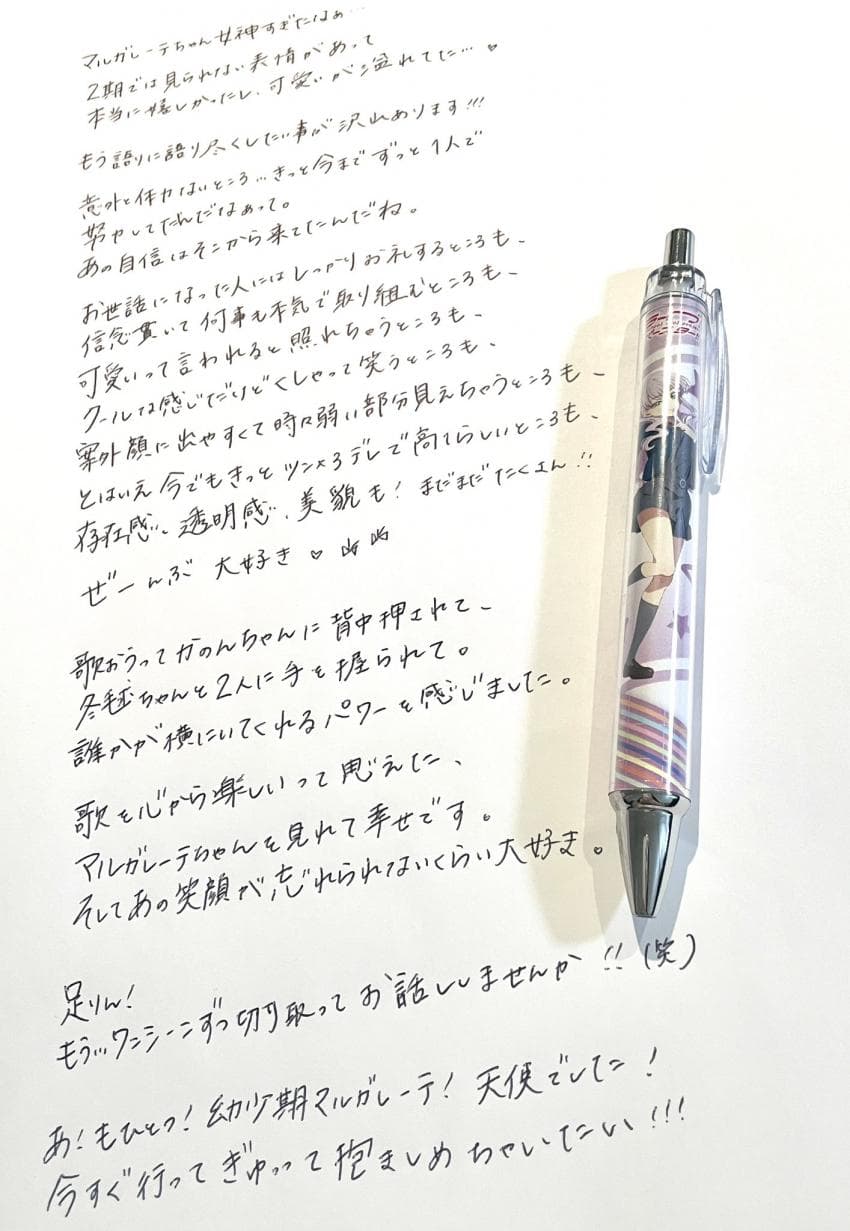 マルガレーテちゃん女神すぎたなぁ…
2期では見られない表情があって
本当に嬉しかったし、可愛いが溢れてた…♡
もう語りに語り尽くしたい事が沢山あります!!!
意外と体力ないところ…きっと今までずっと1人で
努力してたんだなぁって。
あの自信はそこから来てたんだね。
お世話になった人にはしっかりお礼するところも、
信念貫いて何事も本気で取り組むところも、
可愛いって言われると照れちゃうところも、
クールな感じだけどくしゃって笑うところも、
案外顔に出やすくて時々弱い部分見えちゃうところも、
とはいえ今でもきっとツン×3デレで高てらしいところも、
存在感、透明感、美貌も!まだまだたくさん!!
ぜーんぶ 大好き♡
歌おうってかのんちゃんに背中押されて、
冬毬ちゃんと2人に手を握られて。
誰かが横にいてくれるパワーを感じました。
歌を心から楽しいって思えた、
マルガレーテちゃんを見れて幸せです。
そしてあの笑顔が忘れられないくらい大好き。
足りん!
もう…ワンシーンずつ切り取ってお話ししませんか!!(笑)
あ!もひとつ!幼少期マルガレーテ!天使でした!
今すぐ行ってぎゅっって抱きしめちゃいたい!!!